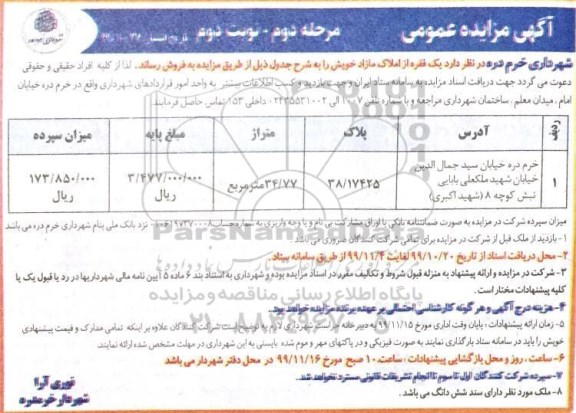 آگهی مزایده عمومی
مرحله دوم - نوبت دوم
شهرداری خرم دره در نظر دارد یک فقره از املاک مازاد خویش را به شرح جدول ذیل از طریق مزایده به فروش رساند. لذا از کلیه افراد حقیقی و حقوقی
دعوت می گردد جهت دریافت اسناد مزایده به سامانه ستاد ایران و جهت بازدید و کسب اطلاعات بیشتر به واحد امور قراردادهای شهرداری واقع در خرم دره خیابان
امام، میدان معلم، ساختمان شهرداری مراجعه و یا شماره تلفن ۷-۰۲۴۳۵۵۳۱۰۰۲ داخلی ۱۵۳ تماس حاصل فرمایند.
ردیف آدرس پلاک متراژ مبلغ پایه میزان سپرده
۱ خرم دره خیابان سید جمال الدین خیابان شهید ملکعلی بابایی نبش کوچه ۸ (شهید اکبری) ۳۸/۱۷۴۲۵ ۳۴/۷۷ مترمربع ۳/۴۷۷/۰۰۰/۰۰۰ ریال ۱۷۳/۸۵۰/۰۰۰ ریال
میزان سپرده شرکت در مزایده به صورت ضمانتنامه بانکی یا اوراق مشارکت بی نام و یا وجه واریزی به شماره حساب نزد بانک ملی بنام شهرداری خرم دره می باشد
۱- بازدید از ملک قبل از شرکت در مزایده برای تمامی شرکت کنندگان ضروری می باشد.
۲- محل دریافت اسناد از تاریخ ۹۹/۱۰/۲۰ لغایت ۹۹/۱۱/۴ از طریق سامانه ستاد.
۳- شرکت در مزایده و ارائه پیشنهاد به منزله قبول شروط و تکالیف مقرر در اسناد مزایده بوده و شهرداری به استناد بند ۶ ماده ۵ آیین نامه مالی شهرداریها در رد یا قبول یک یا
کلیه پیشنهادات مختار است.
۴- هزینه درج آگهی و هرگونه کارشناسی احتمالی بر عهده برنده مزایده خواهد بود.
۵- زمان ارائه پیشنهادات: پایان وقت اداری مورخ ۹۹/۱۱/۱۵ به دبیرخانه حراست شهرداری لازم به توضیح است شرکت کنندگان علاوه بر اینکه تمامی مدارک و قیمت پیشنهادی
خویش را باید در سامانه ستاد بارگذاری نمایند به صورت فیزیکی و در پاکتهای مهر و موم شده بایستی به این شهرداری در مهلت مشخص شده ارائه نمایند
۶- ساعت، روز و محل بازگشایی پیشنهادات: ساعت ۱۰ صبح مورخ ۹۹/۱۱/۱۶ در محل دفتر شهردار می باشد
۷- سپرده شرکت کنندگان اول تا سوم تا انجام تشریفات قانونی مسترد نخواهد شد.
۸- ملک مورد نظر دارای سند شش دانگ می باشد.
نوری آرا
شهردار خرمدره
ParsNamadData
پایگاه اطلاع رسانی مناقصه و مزایده